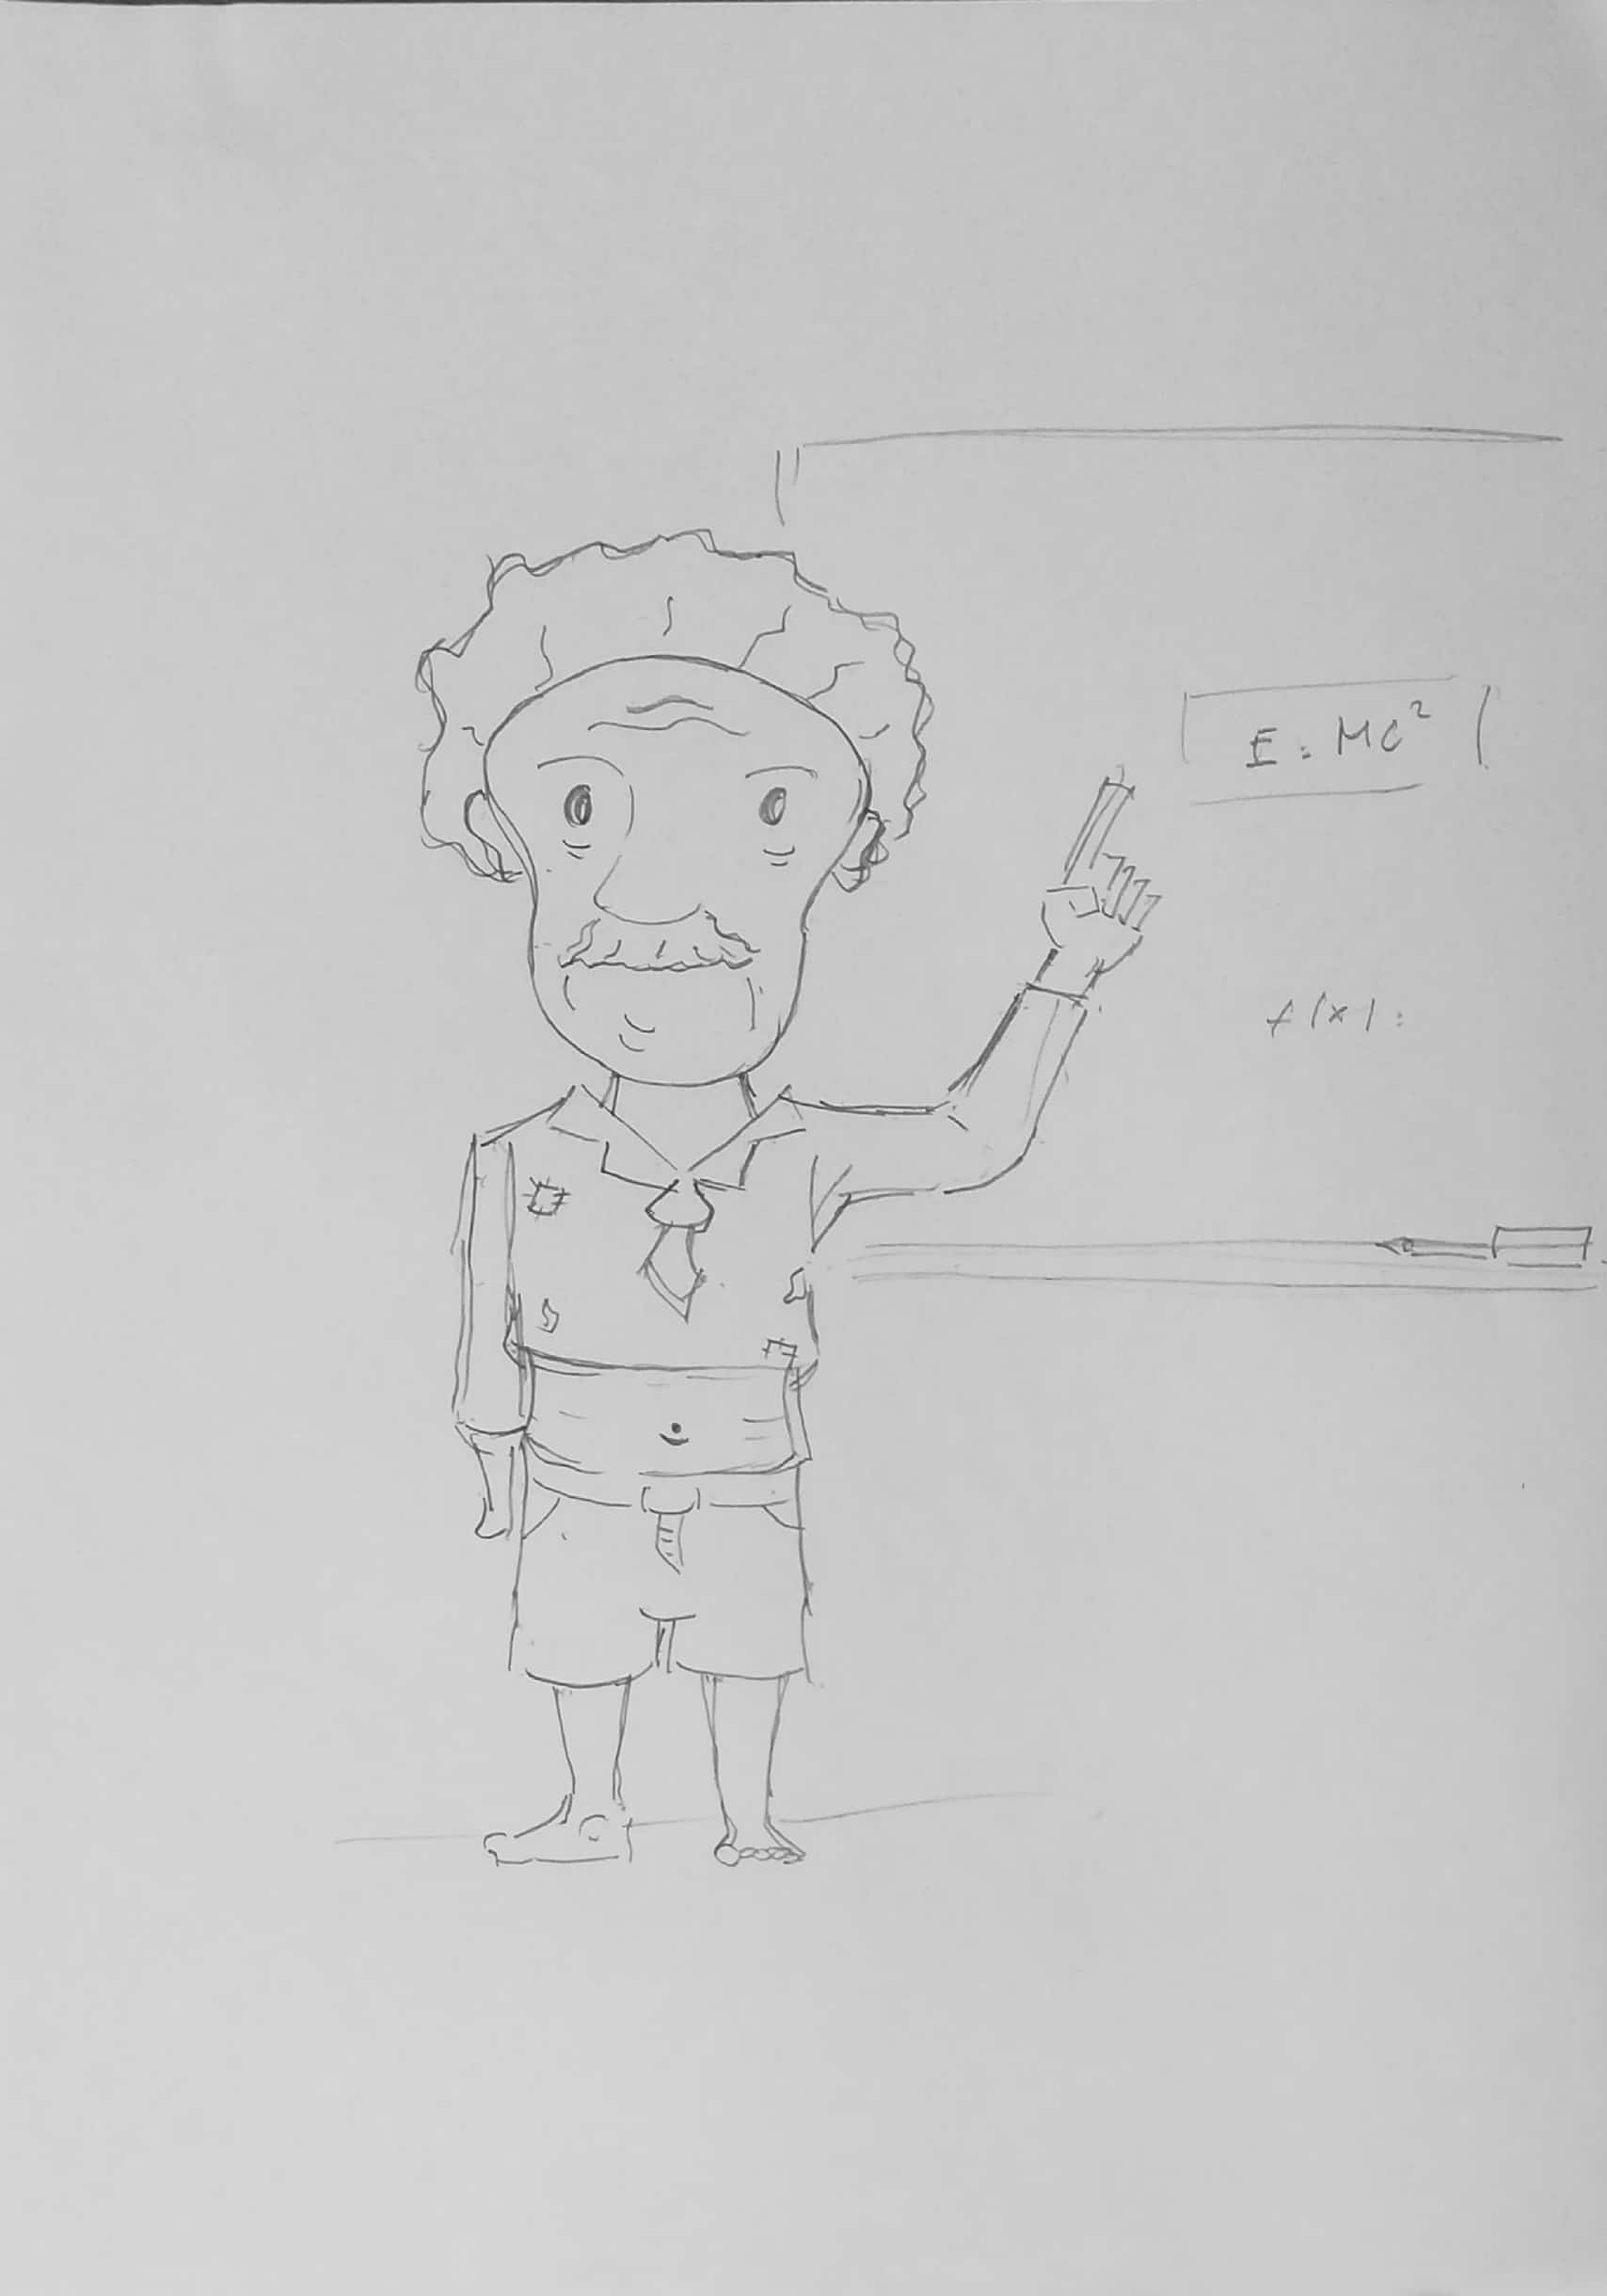 E = MC²
f(x) =